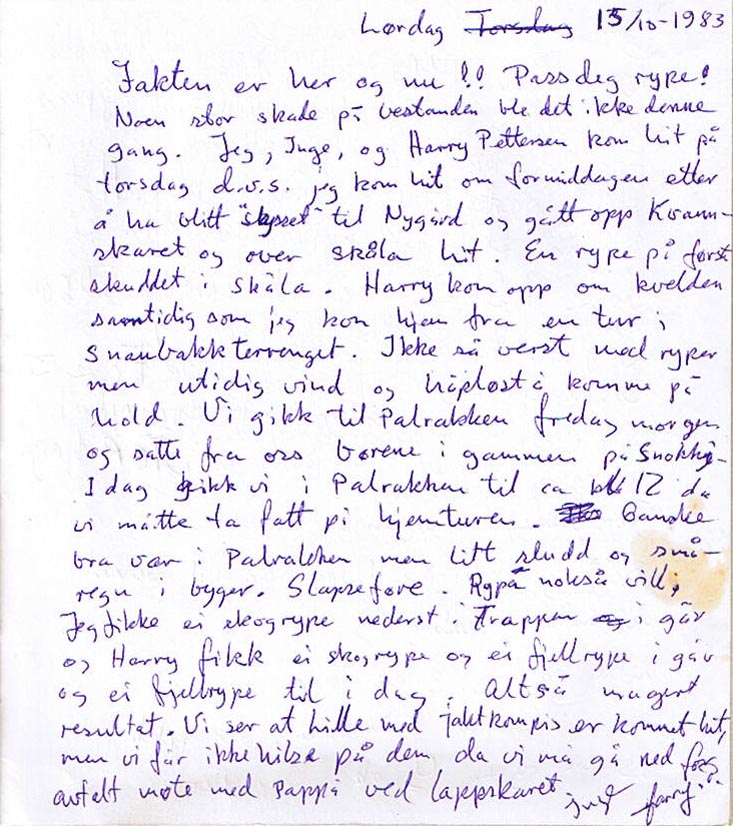 Lørdag Torsdag 15/10-1983
Jakten er her og nu !! Pass deg rype!
Noen stor skade på bestanden ble det ikke denne
gang. Jeg, Inge, og Harry Pettersen kom hit på
torsdag d.v.s. jeg kom hit om formiddagen etter
å ha blitt "skysset" til Nygård og gått opp Kvann-
skaret og over skåla hit. En rype på først
skuddet i skåla. Harry kom opp om kvelden
samtidig som jeg kom hjem fra en tur i
Snaubakkterrenget. Ikke så verst med ryper
men utidig vind og håpløst å komme på
hold. Vi gikk til Palrakken fredag morgen
og satte fra oss børene i gammen på
I dag gikk vi i Palrakken til ca kl 12 da
vi måtte ta fatt på hjemturen. Ganske
bra vær i Palrakken men litt sludd og små-
regn i byger. Slapseføre. Rypå nokså vill,
Jeg fikke ei skogrype nederst i Trappen i går
og Harry fikk ei skogrype og ei fjellrype i går
og ei fjellrype til i dag. Altså magert
resultat. Vi ser at Lille med jaktkompis er kommet hit,
men vi får ikke hilse på dem da vi må gå ned
avtalt møte med pappa ved lappskaret